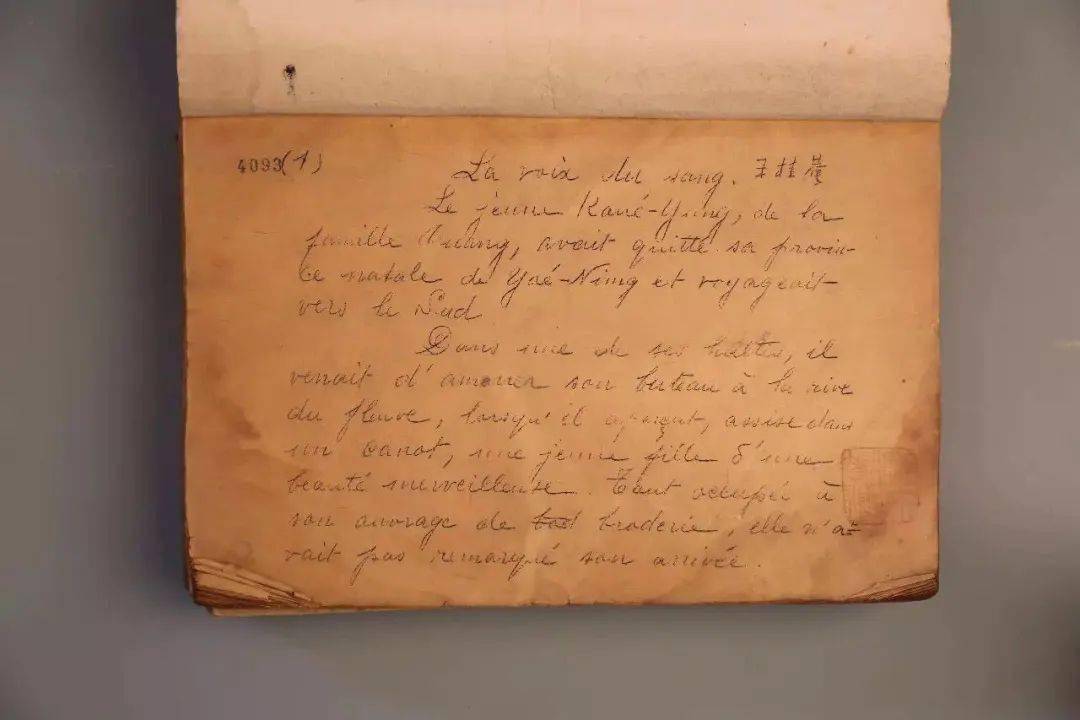 4093(1)
La voix du sang. 王桂菴
Le jeune, de la
famille Ouang, avait quitté sa provin-
ce natale de et voyageait
vers le Sud
Dans une de ses haltes, il
venait d'amener son bateau à la rive
du fleuve, lorsqu'il aperçut, assise dans
un canot, une jeune fille d'une
beauté merveilleuse. Tout occupée à
son ouvrage de broderie, elle n'a-
vait pas remarqué son arrivée.